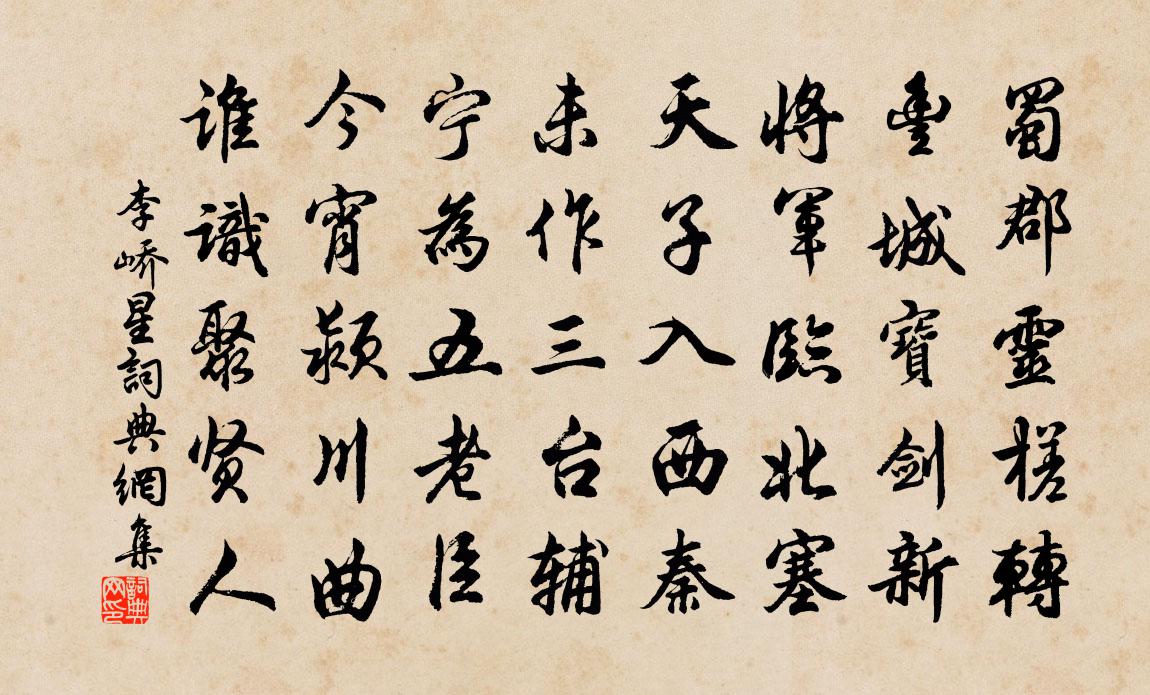 蜀郡靈槎轉
豐城寶劍新
將軍臨北塞
天子入西秦
未作三台輔
宁為五老臣
今宵颍川曲
誰識聚贤人
李嶠星詞典網集
詞典網印